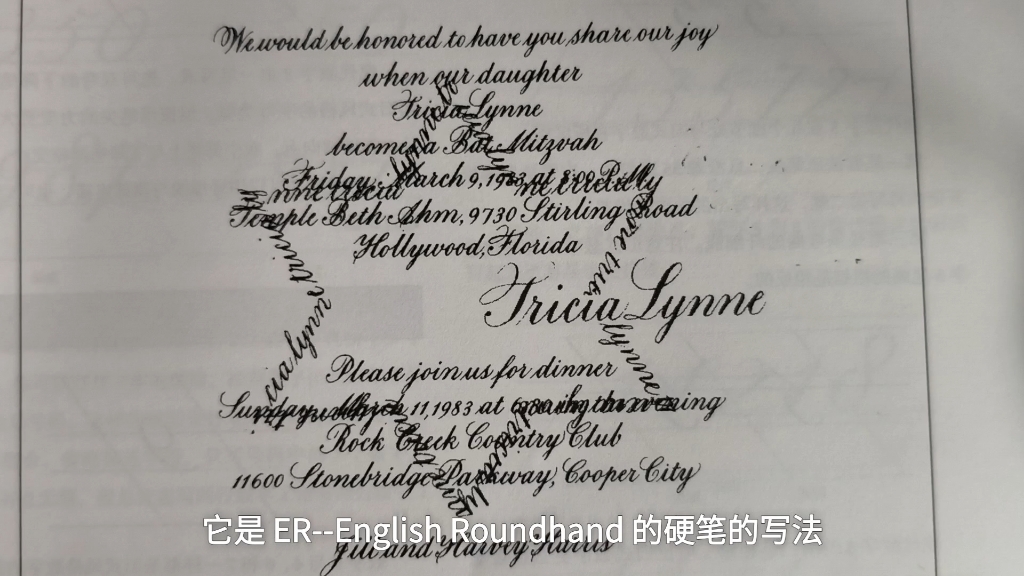 We would be honored to have you share our joy
when our daughter
Tricia Lynne
becomes a Bat Mitzvah
Friday, March 9, 1983 at 8:00 P.M.
Temple Beth Ahm, 9730 Stirling Road
Hollywood, Florida
Tricia Lynne
Please join us for dinner
Sunday, March 11, 1983 at in the evening
Rock Creek Country Club
11600 Stonebridge Parkway, Cooper City
它是 ER--English Roundhand 的硬笔的写法
Jill and Harvey Harris